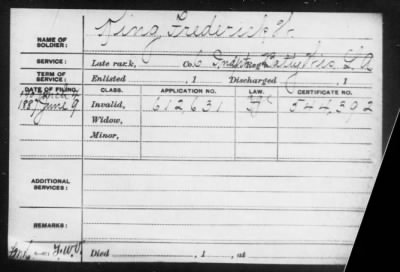 King Frederick W.
NAME OF SOLDIER:
SERVICE: Late rank, Co. 6 Indpt Batty Wis. L. A
TERM OF SERVICE: Enlisted , 1 Discharged , 1
DATE OF FILING. CLASS. APPLICATION NO. LAW. CERTIFICATE NO.
1887 June 9 Invalid, 612,631 544,392
Widow,
Minor,
ADDITIONAL SERVICES:
REMARKS:
F. W. V. Died , 1 , at